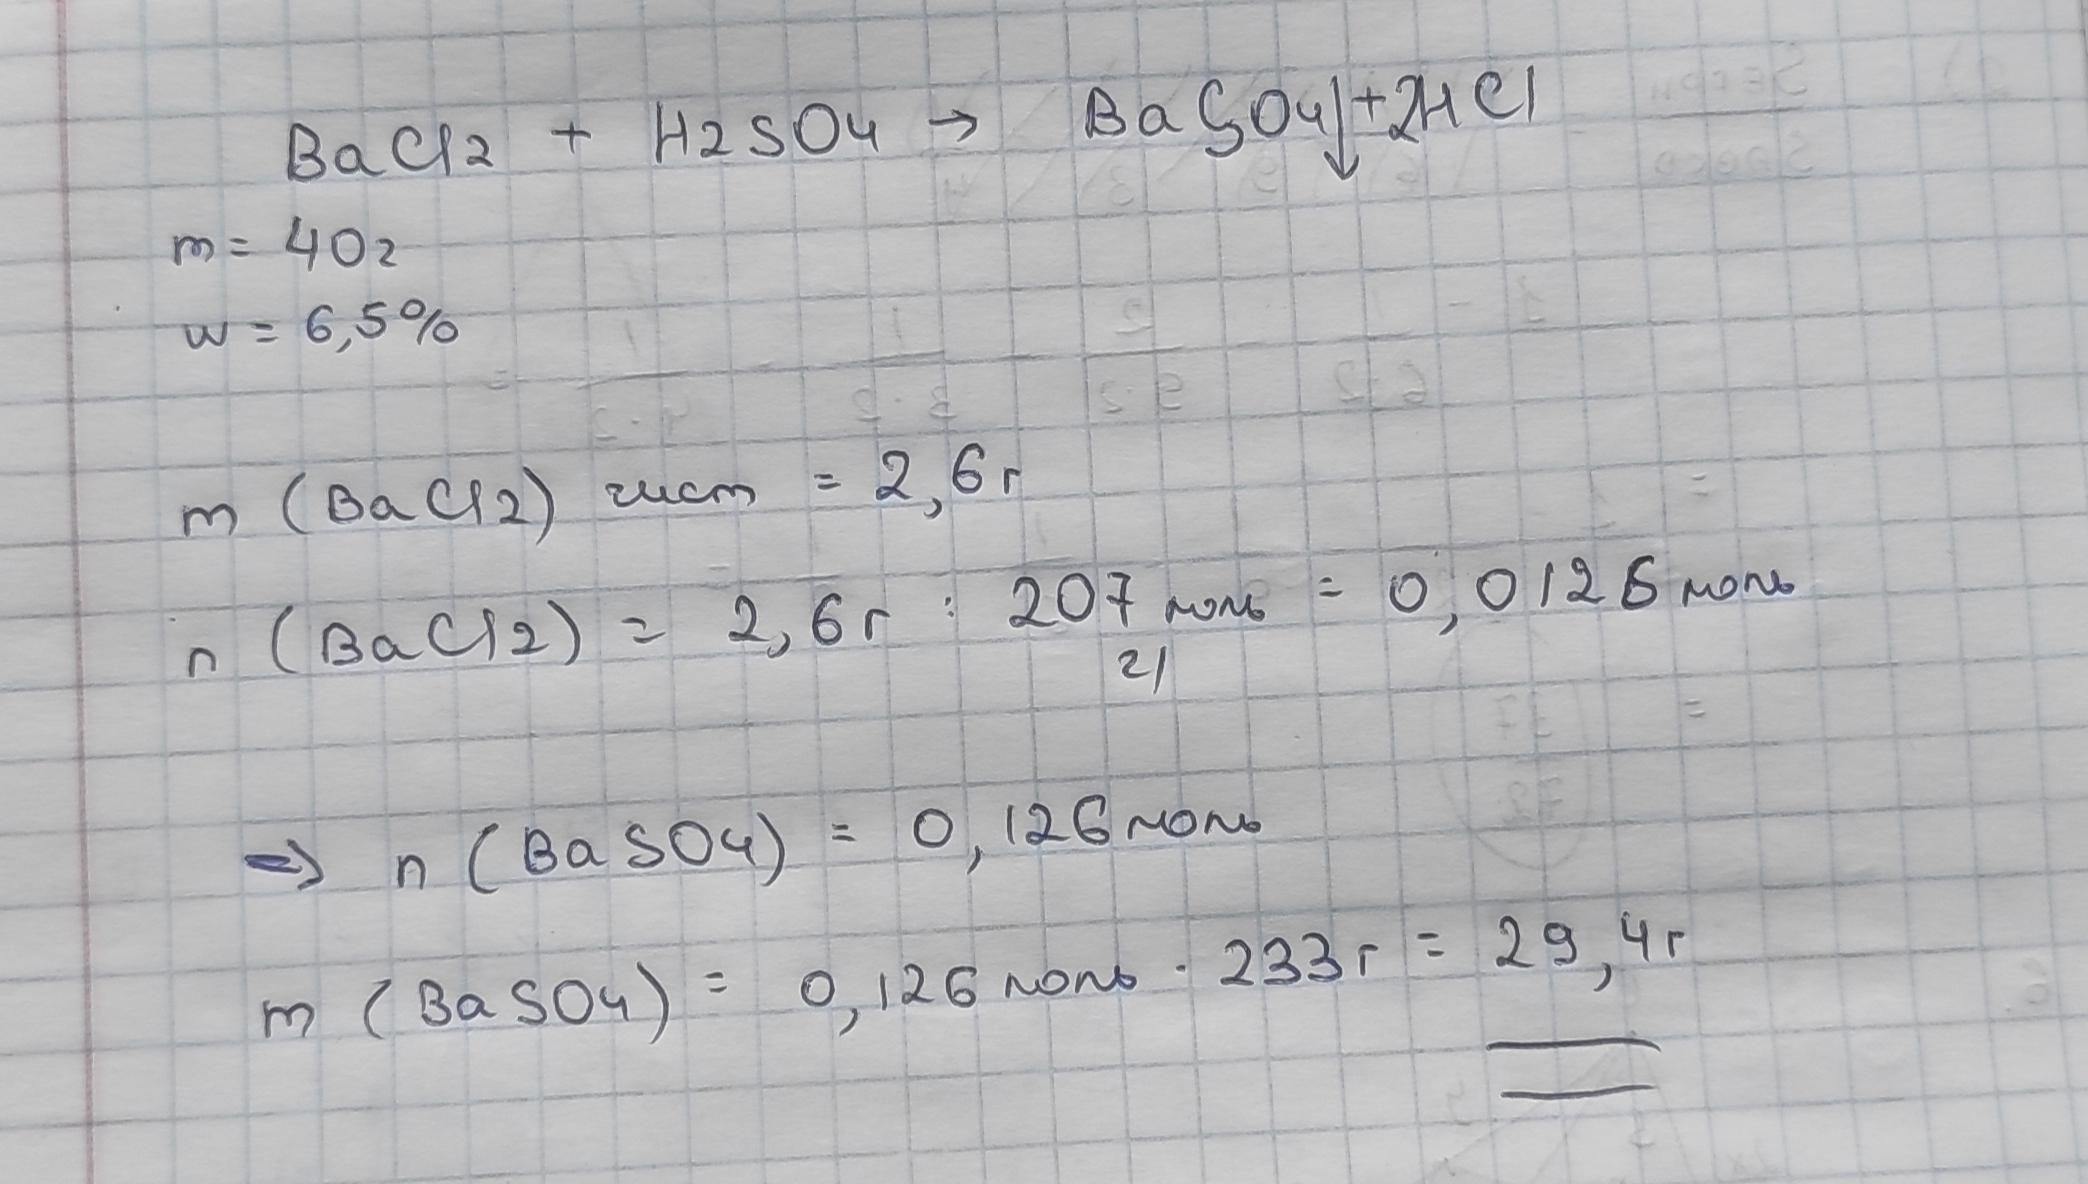 BaCl2 + H2SO4 → BaSO4↓+2HCl
m = 40г
w = 6,5%
m (BaCl2) чист = 2,6г
n (BaCl2) = 2,6г : 207 моль = 0,0126 моль
г/
⇒ n (BaSO4) = 0,126 моль
m (BaSO4) = 0,126 моль · 233г = 29,4г